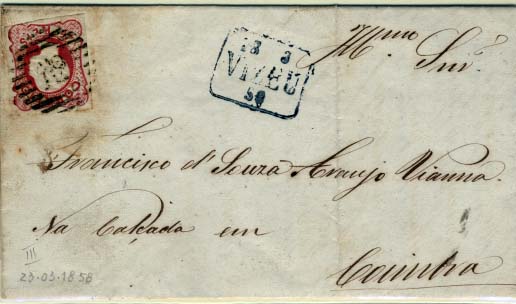 23 3
VIZEU
59
Illmo Snr.
Francisco d'Souza Araujo Vianna.
Na Calçada em
Coimbra
III
23-03-1858